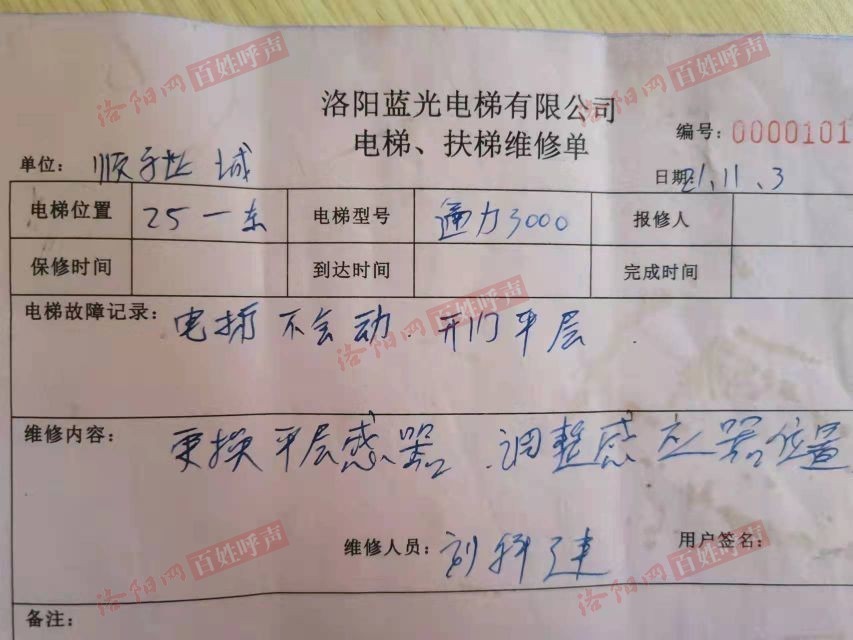 洛阳网 百姓呼声
洛阳网 百姓呼声
洛阳蓝光电梯有限公司
电梯、扶梯维修单
编号: 0000101
单位: 顺 城
日期: 21.11.3
电梯位置 25一东 电梯型号 通力3000 报修人
保修时间 到达时间 完成时间
电梯故障记录: 电梯不会动.开门平层.
洛阳网 百姓呼声
维修内容: 更换平层感器.调整感应器位置
维修人员: 刘科建 用户签名:
洛阳网 百姓呼声
洛阳网 百姓呼声
备注: